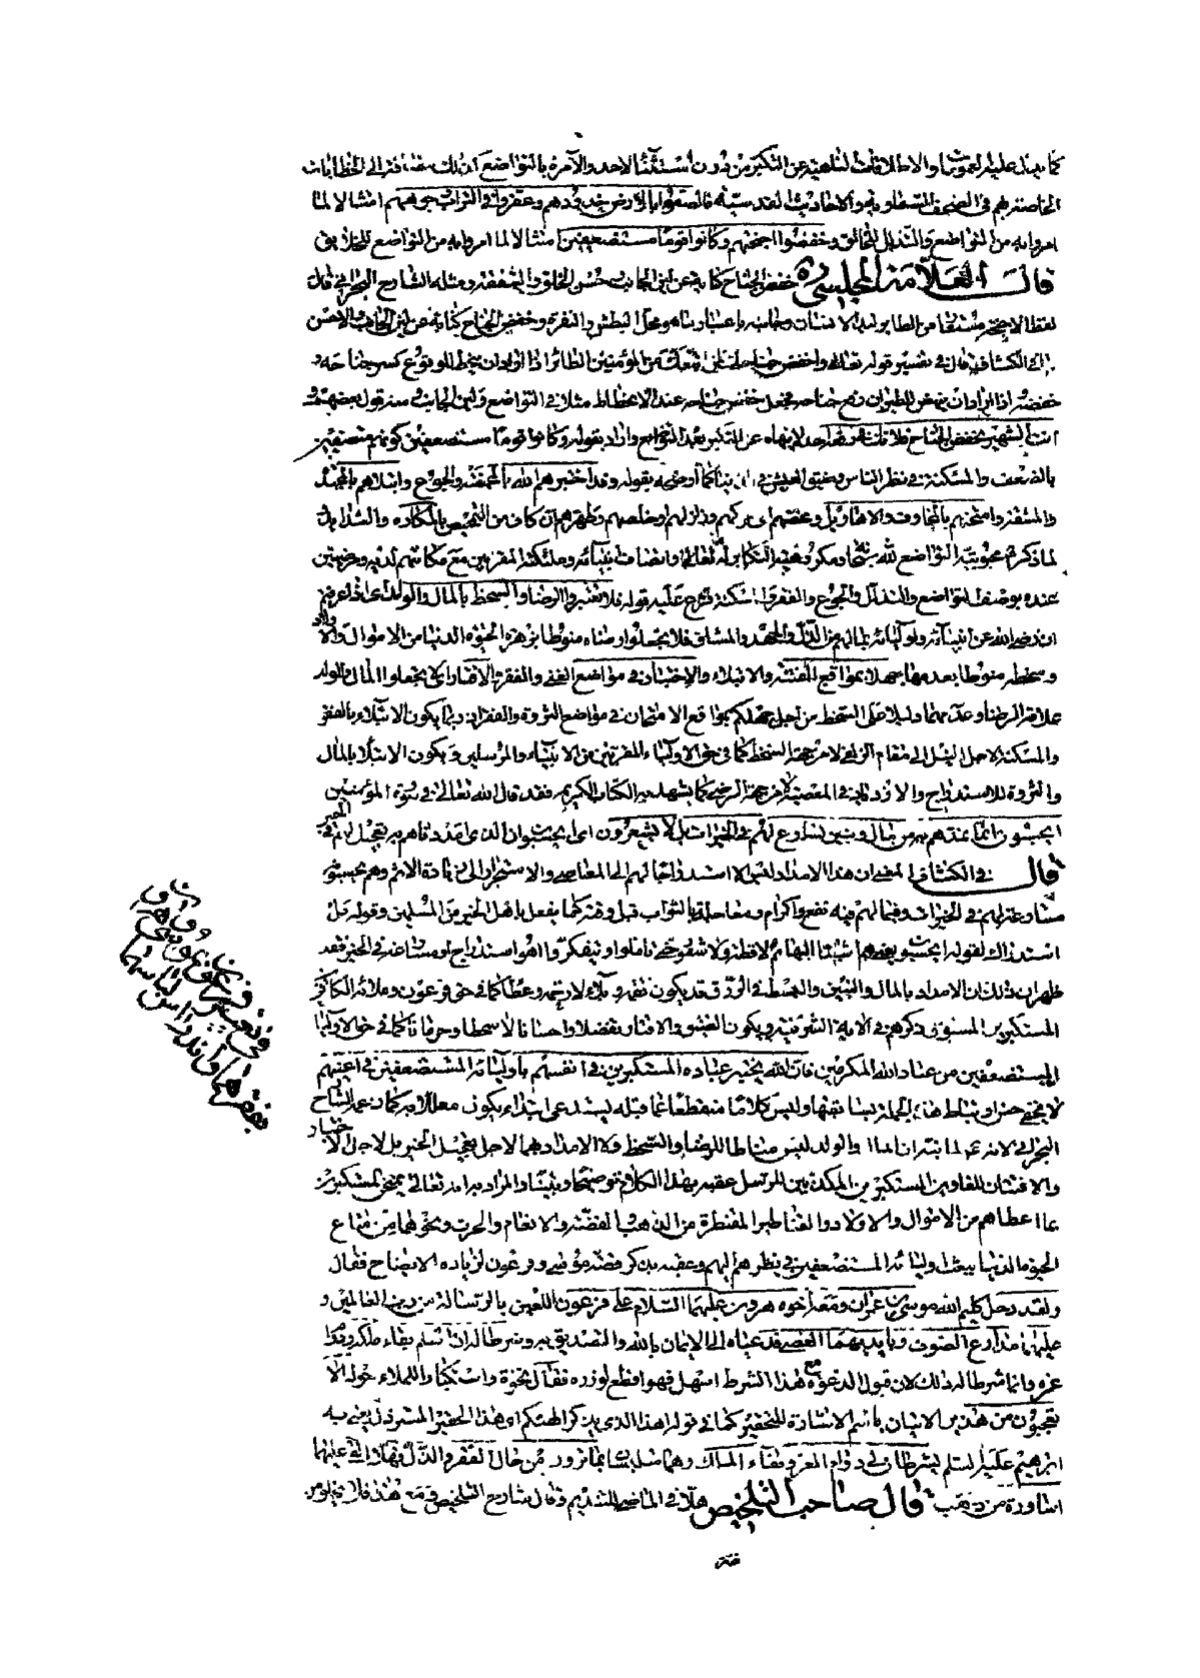 كما يدل عليه العمومات والاطلاقات الناهية عن التكبر من دون استثناء لاحد والآمرة بالتواضع كذلك مضافة الى الخطابات
الخاصة بهم في الصحف السماوية والاحاديث القدسية فالصقوا بالارض خدودهم وعفروا في التراب وجوههم امتثالا لما
امروا به من التواضع والتذلل للخالق وخفضوا اجنحتهم وكانوا قوما مستضعفين امتثالا لما امروا به من التواضع للخلايق
قال العلامة المجلسي ره خفض الجناح كناية عن لين الجانب وحسن الخلق والشفقة ومثله الشارح البحراني قال
لفظ الاجنحة مستعار من الطاير ليد الانسان وجانبه باعتبار ما هو محل البطش والنفرة وخفض الجناح كناية عن لين الجانب والاحسن
الكشاف قال في تفسير قوله تعالى واخفض جناحك لمن اتبعك من المؤمنين الطائر اذا اراد ان ينحط للوقوع كسر جناحه و
خفضه اذا اراد ان ينهض للطيران رفع جناحه فجعل خفض جناحه عند الانحطاط مثلا في التواضع ولين الجانب ومنه قول بعضهم
انت الشهير بخفض الجناح فلا تك في رفعه اجدلا ينهاه عن التكبر بعد التواضع واراد بقوله وكانوا قوما مستضعفين كونهم متصفين
بالضعف والمسكنة في نظر الناس وضيق العيش في الدنيا كما اوضحه بقوله وقد اختبرهم الله بالمخمصة والجوع وابتلاهم بالمجهدة
والمشقة وامتحنهم بالمخاوف والاهاويل ومخضهم اى حركهم وزلزلهم او خلصهم وطهرهم ان كان من التمحيص بالمكاره والشدايد
لما ذكر محبوبية التواضع لله سبحانه ومكروهية التكابر له تعالى واتصاف انبيائه وملئكته المقربين مع مكانتهم لديه ومرضيين
عنده بوصف التواضع والتذلل والجوع والفقر والمسكنة فرع عليه قوله فلا تعتبروا الرضا والسخط بالمال والولد اى اذا عرفتم
ان رضى الله عن انبيائه واوليائه بما لهم من الذل والجهد والمشاق فلا تجعلوا رضاه منوطا بزهرة الحيوة الدنيا من الاموال والاولاد
وسخطه منوطا بعدمها جهلا بمواقع الفتنة والابتلاء والاختبار في مواضع الغنى والفقر والاقتار اى لا تجعلوا المال والولد
علامة الرضا وعدمهما دليلا على السخط من اجل جهلكم بمواقع الامتحان في مواضع الثروة والفقر اذ ربما يكون الابتلاء بالفقر
والمسكنة لاجل النيل الى مقام الزلفى لا من جهة السخط كما في حق الاولياء المقربين من الانبياء والمرسلين ويكون الابتلاء بالمال
والثروة للاستدراج والازدياد في المعصية لا من جهة الرضى كما يشهد به الكتاب الكريم فقد قال الله تعالى في سورة المؤمنين
ايحسبون انما نمدهم به من مال وبنين نسارع لهم في الخيرات بل لا يشعرون اى ايحسبون ان الذى امددناهم به تعجيل لهم في الخير
قال في الكشاف المعنى ان هذا الامداد ليس الا استدراجا لهم الى المعاصي والاستجرار الى زيادة الاثم وهم يحسبونه
مسارعة لهم في الخيرات وفيما لهم فيه نفع واكرام ومعاجلة بالثواب قبل وقته كما يفعل باهل الخير من المسلمين وقوله بل
استدراك لقوله ايحسبون يعنى هم اشباه البهائم لا فطنة ولا شعور حتى تاملوا وتفكروا اهو استدراج او مسارعة في الخير فقد
ظهر ان ذلك ان الامداد بالمال والبنين والبسط في الرزق قد يكون نقمة وبلاء لا رحمة وعطاء كما في حق فرعون وملائه الكافرين
المستكبرين المسوق ذكرهم في الاية الشريفة ويكون الفقر والاقتار تفضلا واحسانا لا سخطا وحرمانا كما في حق الاولياء
المستضعفين من عباد الله المكرمين فان الله يختبر عباده المستكبرين في انفسهم باوليائه المستضعفين في اعينهم
لا يخفى حسن ارتباط هذه الجملة بسابقتها وليس كلاما منقطعا عما قبله ليستدعى ابتداء يكون معللا به كما زعمه الشارح
البحراني لانه ع لما بين ان المال والولد ليس مناطا للرضا والسخط وان الامداد بهما لا لاجل تعجيل الخير بل لاجل الاختبار
والافتتان للغاوين المستكبرين المكذبين للرسل عقبه بهذا الكلام توضيحا وبيانا والمراد به انه تعالى يمتحن المستكبرين
بما اعطاهم من الاموال والاولاد والقناطير المقنطرة من الذهب والفضة والانعام والحرث ونحوها من متاع
الحيوة الدنيا ببعث اوليائه المستضعفين في نظرهم اليهم وعقبه بذكر قصة موسى وفرعون لزيادة الايضاح فقال
ولقد دخل كليم الله موسى بن عمران ومعه اخوه هرون عليهما السلام على فرعون اللعين بالرسالة من رب العالمين و
عليهما مدارع الصوف وبايديهما العصى فدعياه الى الايمان بالله والتصديق به وشرطا له ان اسلم بقاء ملكه ودوام
عزه وانما شرطا له ذلك لان قبول الدعوة مع هذا الشرط اسهل فهو اقطع لعذره فقال بنخوة واستكبار للملاء حوله الا
تعجبون من هذين الاتيان باسم الاشارة للتحقير كما في قوله اهذا الذى يذكر الهتكم اى هذا الحقير المسترذل يعنى به
ابرهيم عليه السلم يشرطان لى دوام العز وبقاء الملك وهما متلبسان بما ترون من حال الفقر والذل فهلا القى عليهما
اساورة من ذهب قال صاحب التلخيص هلا في الماضي للتنديم وقال شارح التلخيص ومع هذا فلا يخلو من